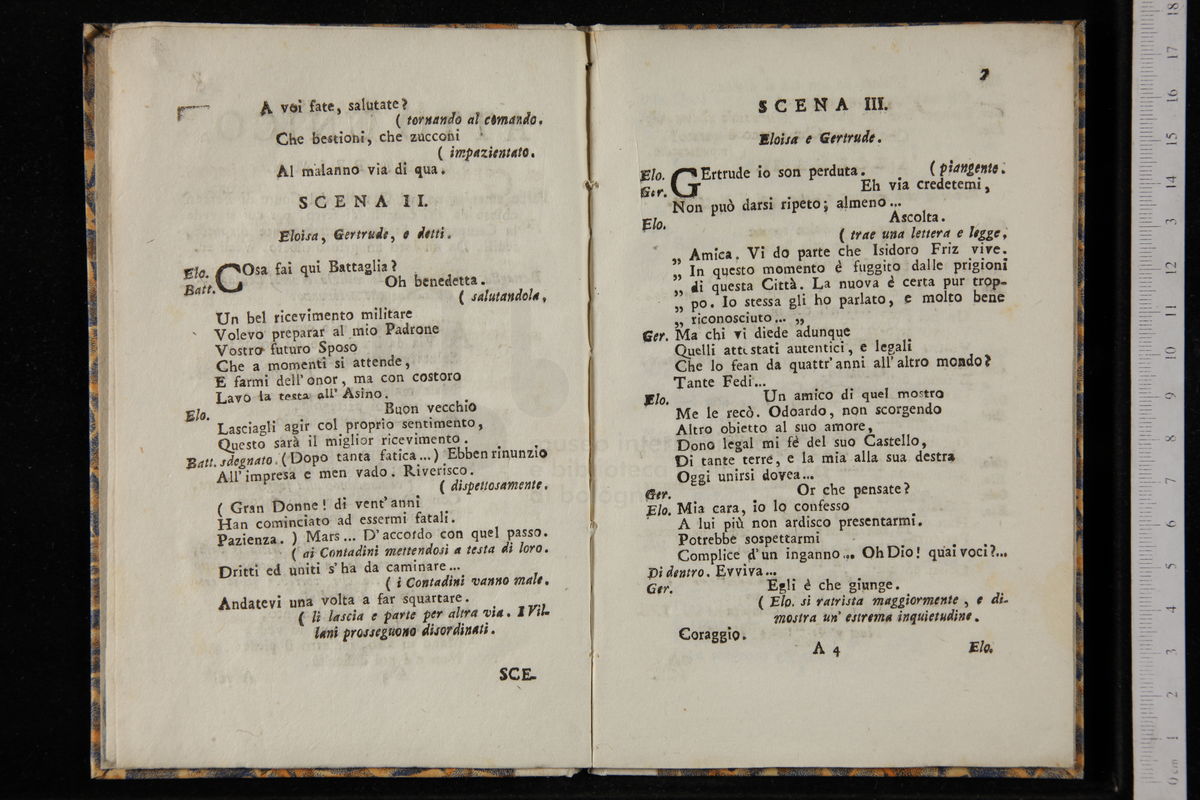 A voi fate, salutate?
( tornando al comando.
Che bestioni, che zucconi
( impazientato.
Al malanno via di qua.
SCENA II.
Eloisa, Gertrude, e detti.
Elo. COsa fai qui Battaglia?
Batt. Oh benedetta.
( salutandola,
Un bel ricevimento militare
Volevo preparar al mio Padrone
Vostro futuro Sposo
Che a momenti si attende,
E farmi dell' onor, ma con costoro
Lavo la testa all' Asino.
Elo. Buon vecchio
Lasciagli agir col proprio sentimento,
Questo sarà il miglior ricevimento.
Batt. sdegnato. ( Dopo tanta fatica ... ) Ebben rinunzio
All' impresa e men vado. Riverisco.
( dispettosamente.
( Gran Donne! di vent' anni
Han cominciato ad essermi fatali.
Pazienza. ) Mars ... D' accordo con quel passo.
( ai Contadini mettendosi a testa di loro.
Dritti ed uniti s' ha da caminare ...
( i Contadini vanno male.
Andatevi una volta a far squartare.
( li lascia e parte per altra via. I Vil-
lani prosseguono disordinati.
SCE-
7
SCENA III.
Eloisa e Gertrude.
Elo. GErtrude io son perduta. ( piangente.
Ger. Eh via credetemi,
Non può darsi ripeto; almeno ...
Elo. Ascolta.
( trae una lettera e legge,
„ Amica. Vi do parte che Isidoro Friz vive.
„ In questo momento è fuggito dalle prigioni
„ di questa Città. La nuova è certa pur trop-
„ po. Io stessa gli ho parlato, e molto bene
„ riconosciuto ... „
Ger. Ma chi vi diede adunque
Quelli attestati autentici, e legali
Che lo fean da quattr' anni all' altro mondo?
Tante Fedi ...
Elo. Un amico di quel mostro
Me le recò. Odoardo, non scorgendo
Altro obietto al suo amore,
Dono legal mi fé del suo Castello,
Di tante terre, e la mia alla sua destra
Oggi unirsi dovea ...
Ger. Or che pensate?
Elo. Mia cara, io lo confesso
A lui più non ardisco presentarmi.
Potrebbe sospettarmi
Complice d' un inganno ... Oh Dio! quai voci? ...
Di dentro. Evviva ...
Ger. Egli è che giunge.
( Elo. si ratrista maggiormente, e di-
mostra un' estrema inquietudine.
Coraggio.
A 4 Elo.